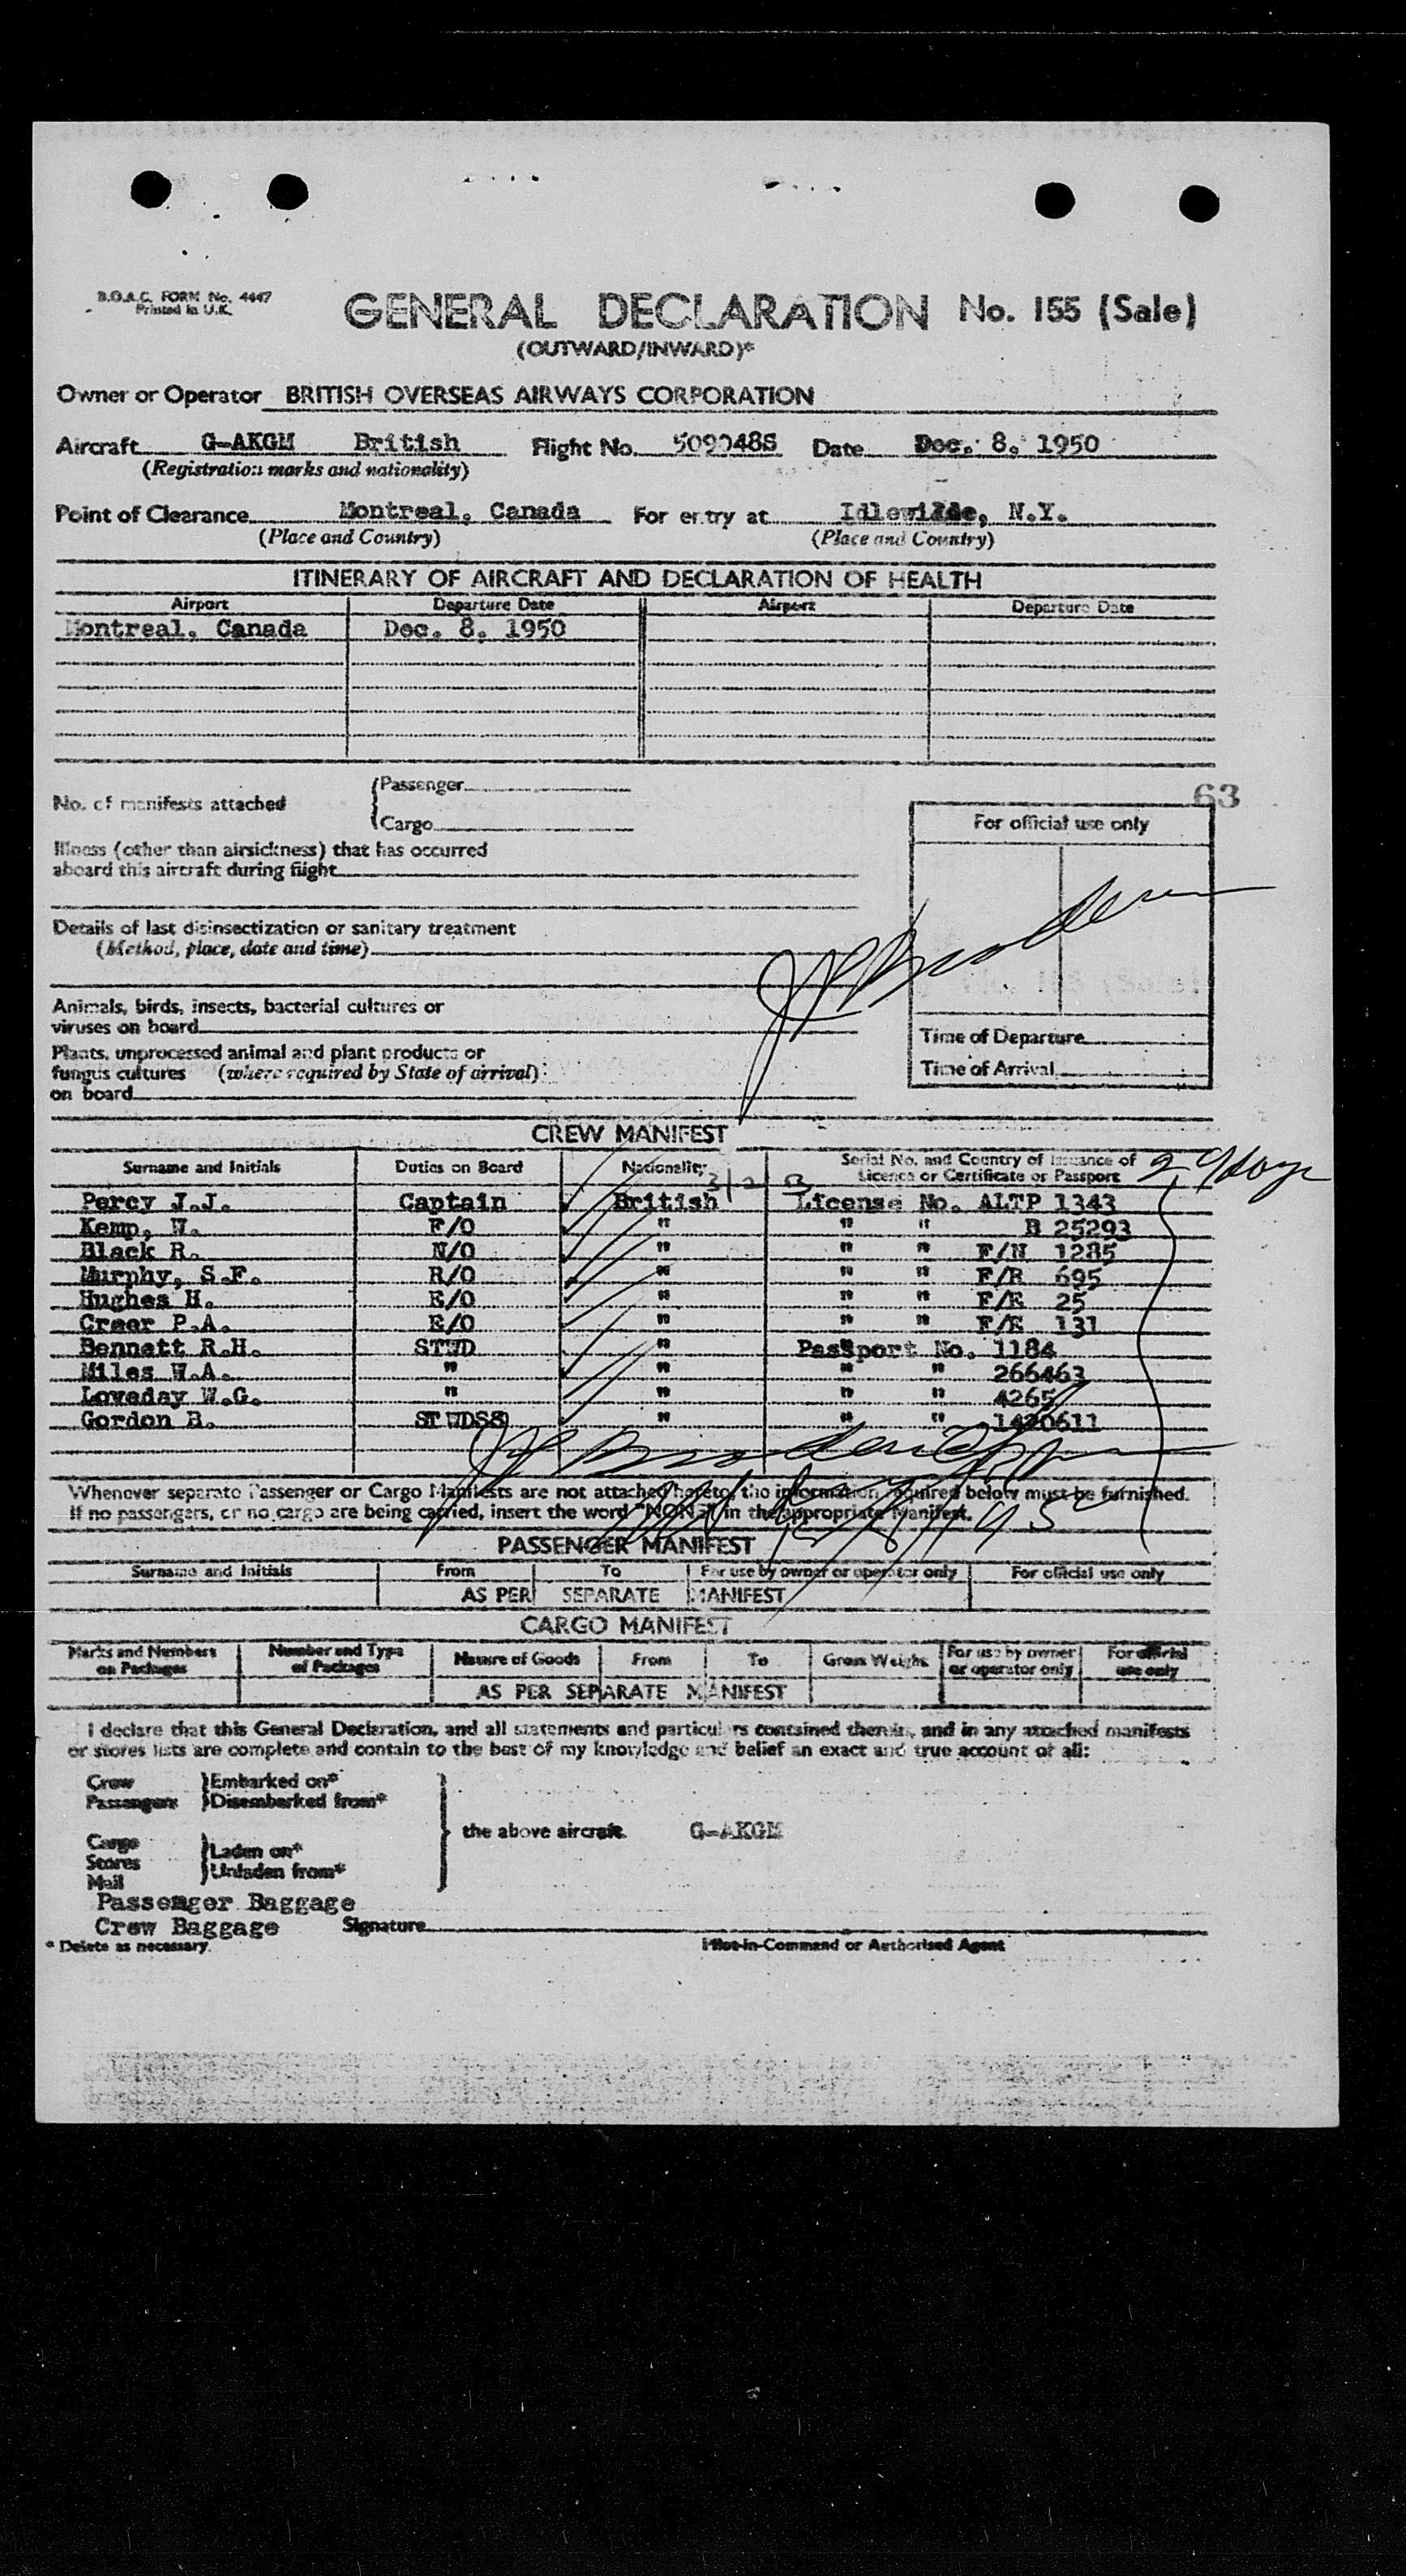 B.O.A.C. FORM No. 4447
Printed in U.K.
GENERAL DECLARATION No. 155 (Sale)
(OUTWARD/INWARD)*
Owner or Operator BRITISH OVERSEAS AIRWAYS CORPORATION
Aircraft G-AKGM British Flight No. 509048S Date Dec. 8. 1950
(Registration marks and nationality)
Point of Clearance Montreal, Canada For entry at Idlewilde, N.Y.
(Place and Country) (Place and Country)
ITINERARY OF AIRCRAFT AND DECLARATION OF HEALTH
Airport Departure Date Airport Departure Date
Montreal, Canada Dec. 8. 1950
No. of manifests attached Passenger
Cargo
63
For official use only
Illness (other than airsickness) that has occurred
aboard this aircraft during flight
Details of last disinsectization or sanitary treatment
(Method, place, date and time)
Animals, birds, insects, bacterial cultures or
viruses on board
Plants, unprocessed animal and plant products or
fungus cultures (where required by State of arrival)
on board
Time of Departure
Time of Arrival
CREW MANIFEST
Surname and Initials Duties on Board Nationality Serial No. and Country of Issuance of
Licence or Certificate or Passport
29 days
Percy J.J. Captain British License No. ALTP 1343
Kemp, W. F/O " " " B 25293
Black R. N/O " " " F/N 1285
Murphy, S.F. R/O " " " F/R 695
Hughes H. E/O " " " F/E 25
Creer P.A. E/O " " " F/E 131
Bennett R.H. STWD " Passport No. 1184
Miles W.A. " " " " 266463
Loveday W.G. " " " " 4265
Gordon B. STWDSS " " " 1420611
Whenever separate Passenger or Cargo Manifests are not attached hereto, the information required below must be furnished.
If no passengers, or no cargo are being carried, insert the word "NONE" in the appropriate Manifest.
PASSENGER MANIFEST
Surname and Initials From To For use by owner or operator only For official use only
AS PER SEPARATE MANIFEST
CARGO MANIFEST
Marks and Numbers on Packages Number and Type of Packages Nature of Goods From To Gross Weight For use by owner or operator only For official use only
AS PER SEPARATE MANIFEST
I declare that this General Declaration, and all statements and particulars contained therein, and in any attached manifests
or stores lists are complete and contain to the best of my knowledge and belief an exact and true account of all:
Crew Embarked on*
Passengers Disembarked from*
the above aircraft. G-AKGM
Cargo Laden on*
Stores Unladen from*
Mail
Passenger Baggage
Crew Baggage Signature
* Delete as necessary. Pilot-in-Command or Authorised Agent